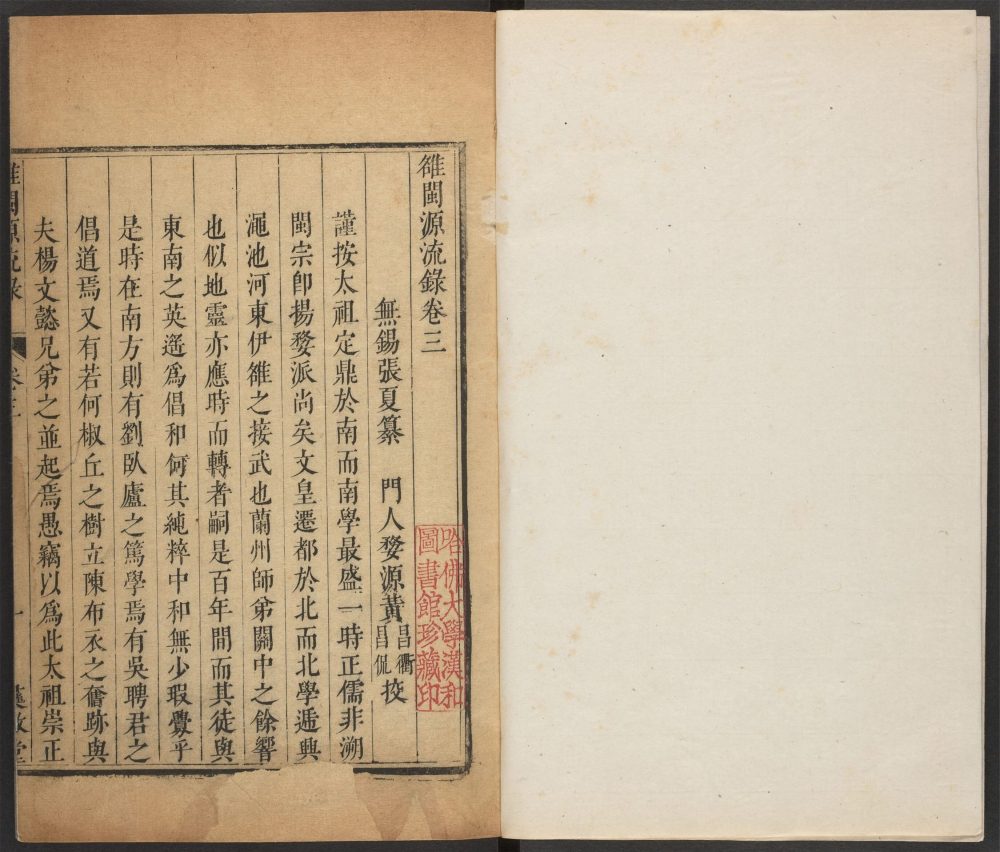 雒閩源流錄卷三
無錫張夏纂　門人婺源黃昌衢昌侃挍
謹按太祖定鼎於南而南學最盛一時正儒非溯
閩宗卽揚婺派尚矣文皇遷都於北而北學遞興
澠池河東伊雒之接武也蘭州師弟關中之餘響
也似地靈亦應時而轉者嗣是百年間而其徒與
東南之英遙爲倡和何其純粹中和無少瑕釁乎
是時在南方則有劉臥廬之篤學焉有吳聘君之
倡道焉又有若何椒丘之樹立陳布衣之奮跡與
夫楊文懿兄弟之並起焉愚竊以爲此太祖崇正
雒閩源流錄
卷三
一
哈佛大學漢和
圖書館珍藏印